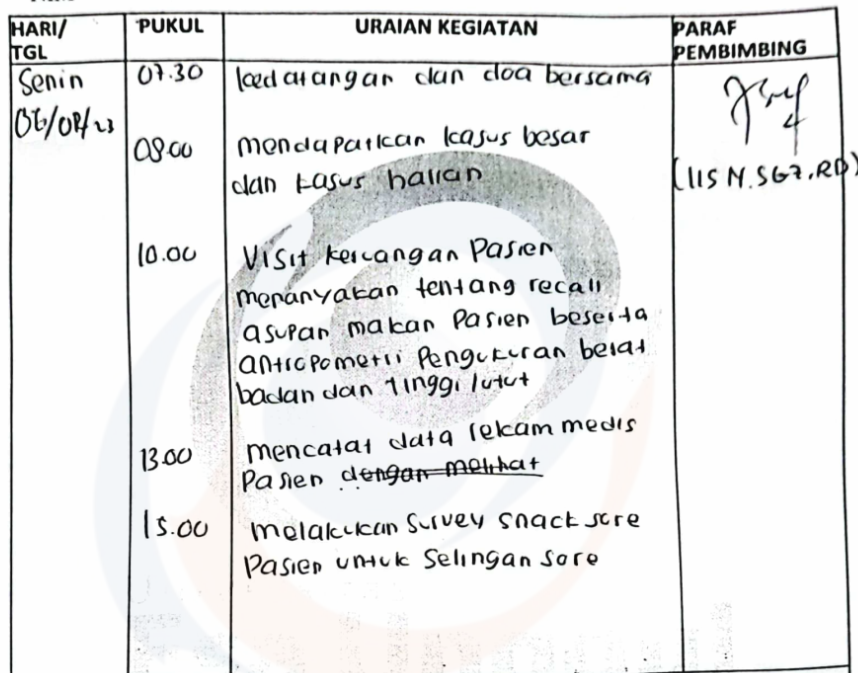 HARI/ TGL PUKUL URAIAN KEGIATAN PARAF PEMBIMBING
Senin 07.30 kedatangan dan doa bersama
08.00 mendapatkan kasus besar
dan kasus harian
10.00 Visit keruangan Pasien
menanyakan tentang recall
asupan makan Pasien beserta
antropometri Pengukuran berat
badan dan tinggi lutut
13.00 mencatat data rekam medis
Pasien dengan melihat
15.00 melakukan Survey snack sore
Pasien untuk Selingan sore